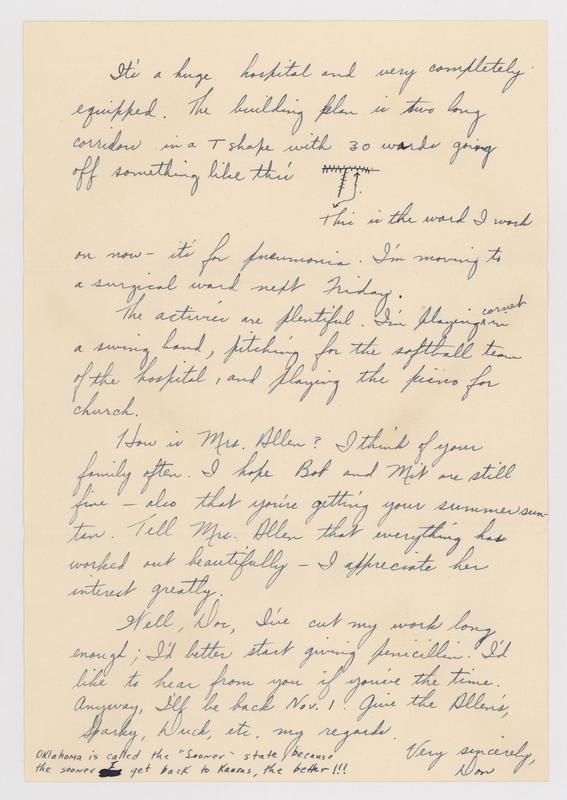 It's a huge hospital and very completely
equipped. The building plan is two long
corridors in a T shape with 30 wards going
off something like this
This is the ward I work
on now - it's for pneumonia. I'm moving to
a surgical ward next Friday.
The activies are plentiful. I'm playing cornet in
a swing band, pitching for the softball team
of the hospital, and playing the piano for
church.
How is Mrs. Allen? I think of your
family often. I hope Bob and Mit are still
fine - also that you're getting your summer sun-
tan. Tell Mrs. Allen that everything has
worked out beautifully - I appreciate her
interest greatly.
Well, Doc, I've cut my work long
enough; I'd better start giving penicillin. I'd
like to hear from you if you've the time.
Anyway, I'll be back Nov. 1. Give the Allen's,
Sparky, Duck, etc. my regards.
Very sincerely,
Don
Oklahoma is called the "Sooner" state, because
the sooner I get back to Kansas, the better!!!